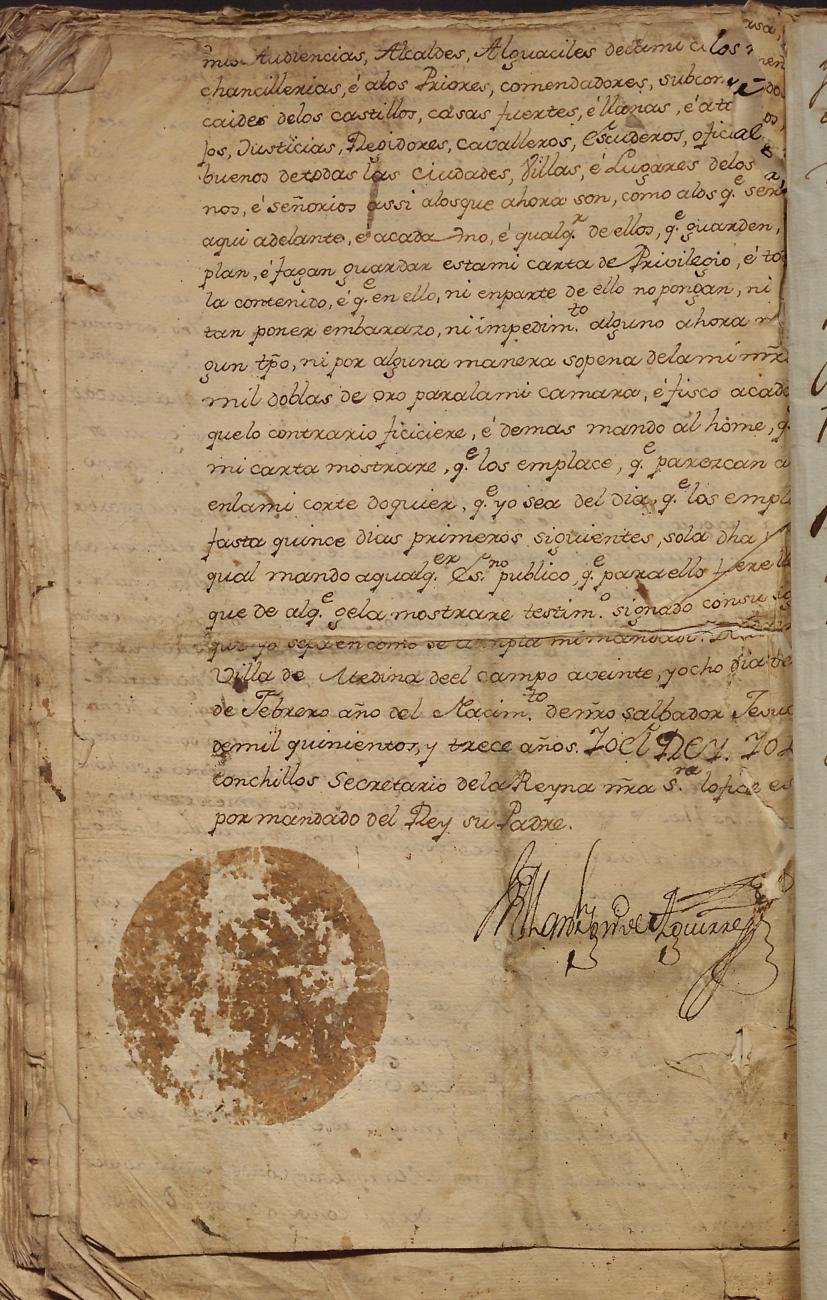 mis Audiencias, Alcaldes, Alguaciles delami
chancillerias, é alos Priores, comendadores, subcom
caides delos castillos, casas fuertes, é llanas, é a
jos, Justicias, Regidores, cavalleros, escuderos, oficial
buenos detodas las ciudades, Villas, é Lugares delos
nos, é señorios assi alosque ahora son, como alos q.e serà
aqui adelante, é acada Vno, é qualq.r de ellos, q.e guarden,
plan, é fagan guardar estami carta de Privilegio, é to
lo contenido, é q.e en ello, ni enparte de ello no pongan, ni
tan poner embarazo, ni impedim.to alguno ahora
gun tpõ, ni por alguna manera sopena delami mrd
mil doblas de oro paralami camara, é fisco acada
quelo contrario ficiciere, é demas mando al hõme, q.
mi carta mostrare, q.e los emplace, q.e parezcan a
enlami corte doquier, q.e yo sea del dia, q.e los empl
fasta quince dias primeros siguientes, sola dha
qual mando aqualq.er es.no publico, q.e paraello
que de alq.e gela mostrare testim.o signado consu sig
que yo sepa encomo se cumpla mimandado.
Villa de Medina deel campo aveinte, y ocho dia de
de Febrero año del Nacim.to demro salbador Jesu
demil quinientos, y trece años. Yo el Rey. Yo
tonchillos Secretario dela Reyna mra s.ra lofice es
por mandado del Rey su Padre.
de Aguirre